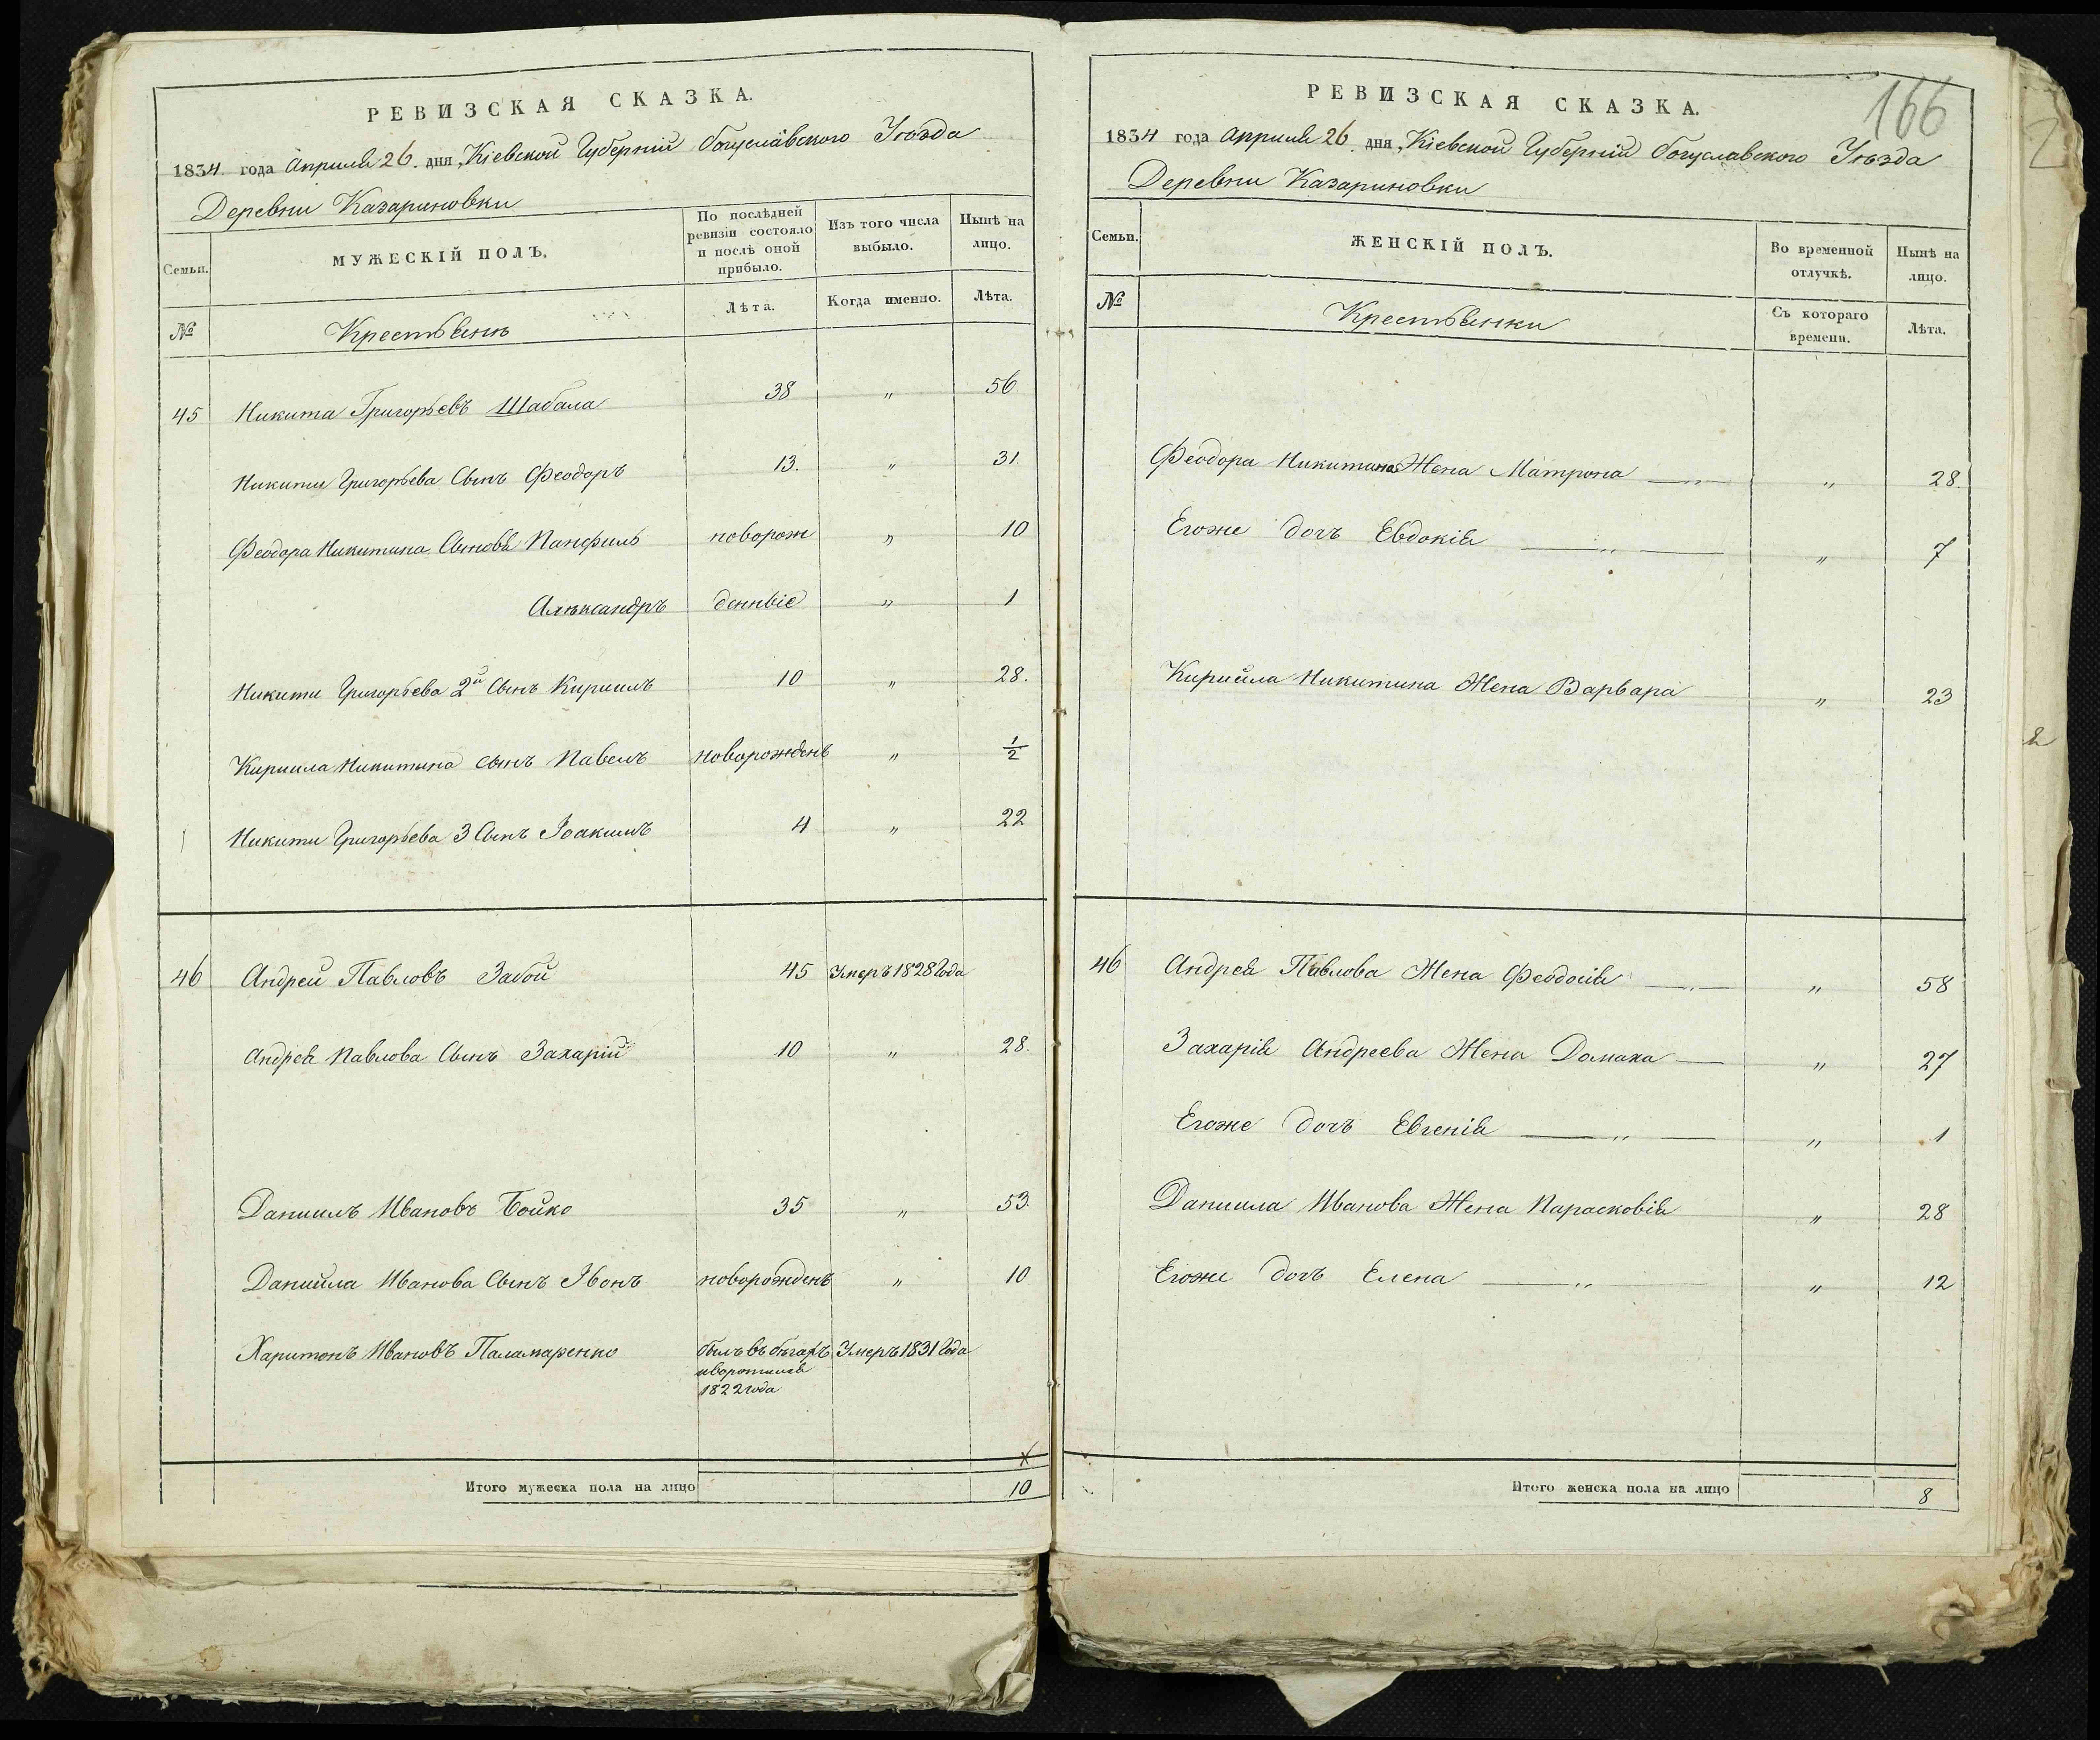 РЕВИЗСКАЯ СКАЗКА.
1834 года Априля 26. дня, Кіевской Губерніи Богуславского Уѣзда
Деревни Казариновки
Семьи.
МУЖЕСКІЙ ПОЛЪ.
По послѣдней ревизіи состояло и послѣ оной прибыло.
Изъ того числа выбыло.
Нынѣ на лицо.
№
Крестьяне
Лѣта.
Когда именно.
Лѣта.
45 Никита Григорьевъ Шабала 38 " 56.
Никиты Григорьева Сынъ Феодоръ 13. " 31.
Феодора Никитина Сыновья Панфилъ новорож " 10
Александръ денные " 1
Никиты Григорьева 2й Сынъ Кириилъ 10 " 28.
Кириила Никитина сынъ Павелъ новорожденъ " 1/2
Никиты Григорьева 3 Сынъ Іоакимъ 4 " 22
46 Андрей Павловъ Забой 45 Умеръ 1828 Года
Андрея Павлова Сынъ Захарій 10 " 28.
Даниилъ Ивановъ Бойко 35 " 53.
Даниила Иванова Сынъ Івонъ новорожденъ " 10
Харитонъ Ивановъ Паламаренко былъ въ бегахъ Умеръ 1831 Года
иворотился
1822 года
Итого мужеска пола на лицо 10
166
РЕВИЗСКАЯ СКАЗКА.
1834 года Априля 26. дня, Кіевской Губерніи Богуславского Уѣзда
Деревни Казариновки
Семьи.
ЖЕНСКІЙ ПОЛЪ.
Во временной отлучкѣ.
Нынѣ на лицо.
№
Крестьянки
Съ котораго времени.
Лѣта.
Феодора Никитина Жена Матрона " 28.
Егоже дочъ Евдокія " 7
Кириила Никитина Жена Варвара " 23
46 Андрея Павлова Жена Феодосія " 58
Захарія Андреева Жена Домаха " 27
Егоже дочъ Евгенія " 1
Даниила Иванова Жена Парасковія " 28
Егоже дочъ Елена " 12
Итого женска пола на лицо 8